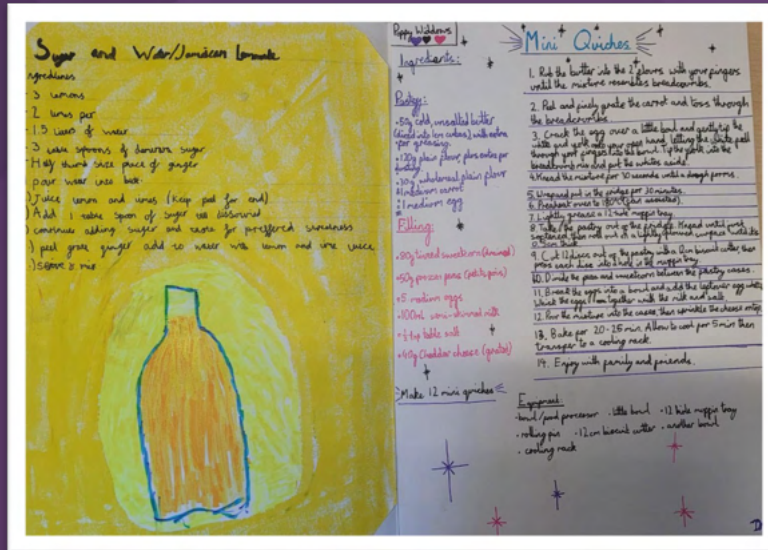 Sugar and Water/Jamaican Lemonade
ngredients
3 lemons
2 limes
1.5 liters of water
3 table spoons of demerara sugar
Half thumb size piece of ginger
Juice lemon and limes (Keep peel for end)
Add 1 table spoon of sugar
continue adding sugar and taste for preffered sweetness
peel grate ginger add to water with lemon and lime juice
serve
Poppy Widdows
Ingredients:
Pastry:
50g cold, unsalted butter
(diced into 1cm cubes) with extra
for greasing.
120g plain flour, plus extra for
dusting
30g wholemeal plain flour
1 medium carrot
1 medium egg
Filling:
20g tinned sweetcorn (drained)
50g frozen peas (petits pois)
5 medium eggs
100ml semi-skimmed milk
table salt
40g Cheddar cheese (grated)
Make 12 mini quiches
Mini Quiches
1. Rub the butter into the 2 flours with your fingers
until the mixture resembles breadcrumbs.
2. Peel and finely grate the carrot and toss through
the breadcrumbs.
3. Crack the egg over a little bowl and gently tip the
white and yolk into your hand, letting the white fall
through your fingers into the bowl. Tip the yolk into the
breadcrumb mix and put the whites aside.
4. Knead the mixture for 30 seconds until a dough forms.
5. Wrap and put in the fridge for 30 minutes.
6. Preheat oven to 180°C (fan assisted).
7. Lightly grease a 12 hole muffin tray.
8. Take the pastry out of the fridge. Knead until just
softened, then roll out on a lightly floured surface until it's
0.5cm thick.
9. Cut 12 discs out of the pastry with a 12cm biscuit cutter, then
press each disc into a hole in the muffin tray.
10. Divide the peas and sweetcorn between the pastry cases.
11. Break the eggs into a bowl and add the leftover egg white.
Whisk the eggs together with the milk and salt.
12. Pour the mixture into the cases, then sprinkle the cheese on top.
13. Bake for 20-25 min. Allow to cool for 5 min then
transfer to a cooling rack.
14. Enjoy with family and friends.
Equipment:
bowl/food processor • little bowl • 12 hole muffin tray
• rolling pin • 12cm biscuit cutter • another bowl
• cooling rack